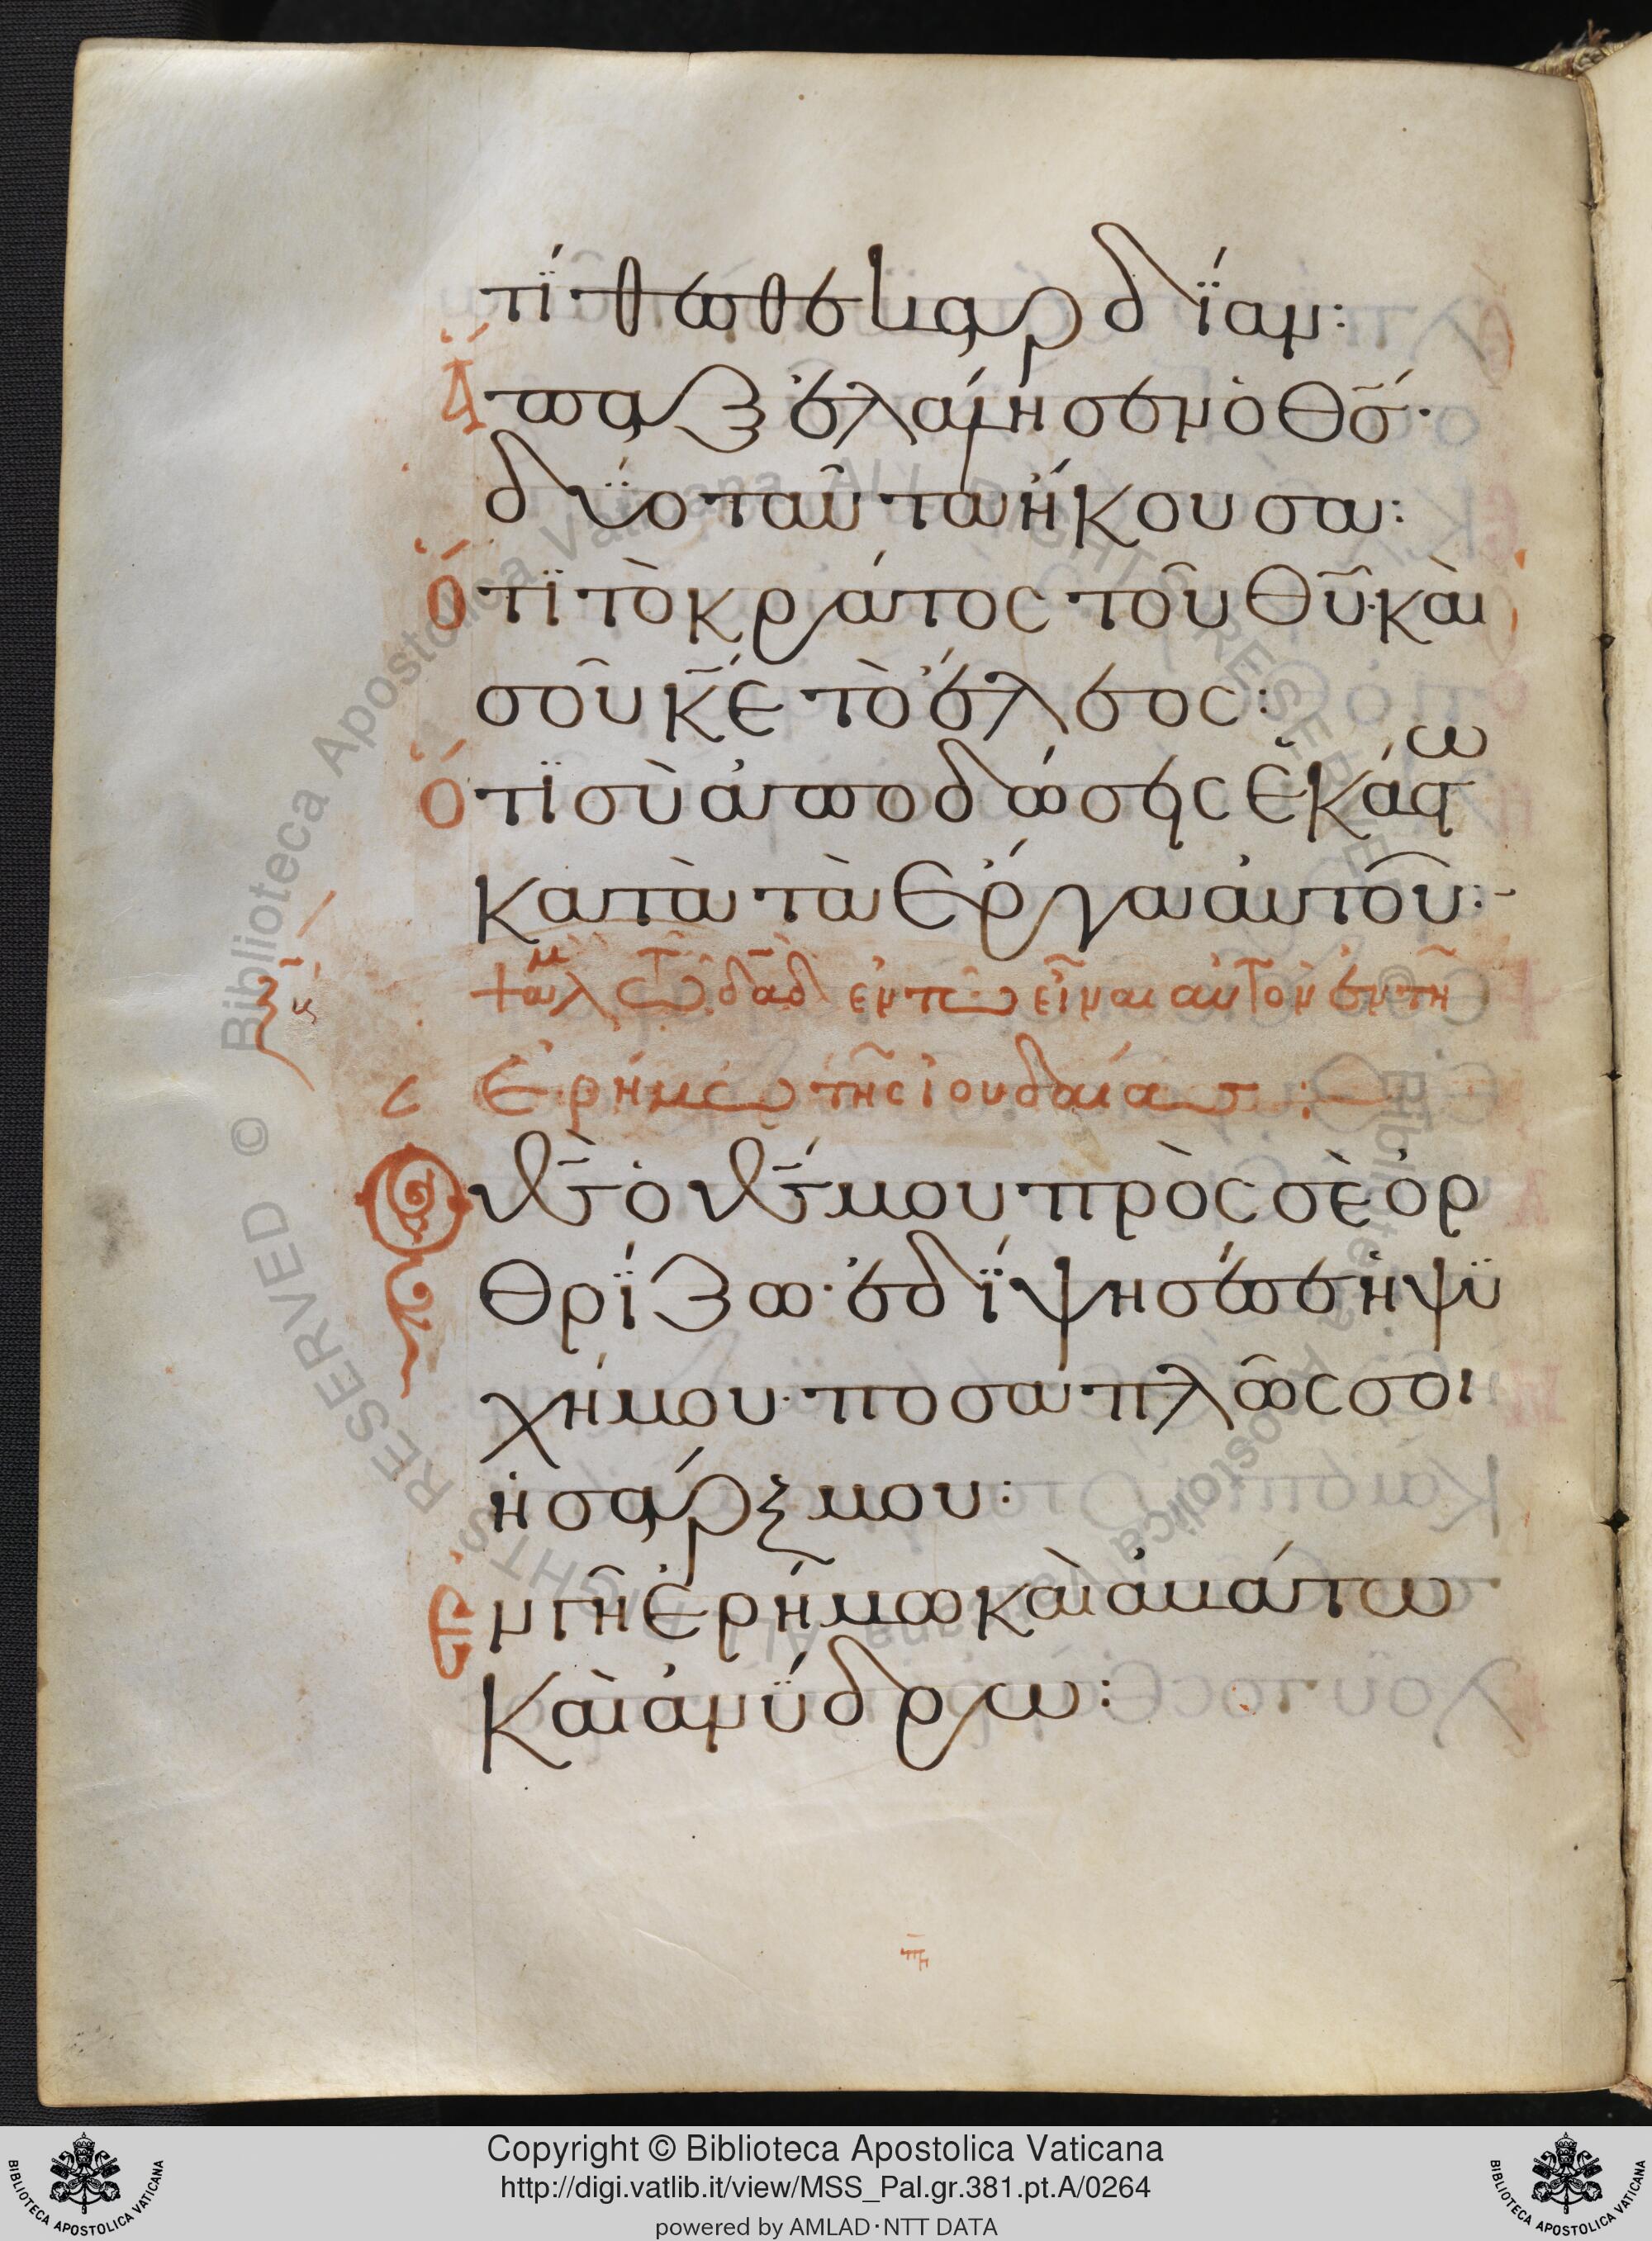 τίθεσθε καρδίαν:
Ἅπαξ ἐλάλησεν ὁ Θς̅·
δύο ταῦτα ἤκουσα:
Ὅτι τὸ κράτος τοῦ Θυ̅· καὶ
σοῦ κε̅ τὸ ἔλεος:
Ὅτι σὺ ἀποδώσεις ἑκάστω
κατὰ τὰ ἔργα αὐτοῦ:-
ψαλμ τῶ δαδ̅ ἐν τῶ εἶναι αὐτὸν ἐν τῆ
ξβ
ἐρήμω τῆς ἰουδαίας:
Ὁ θς̅ ὁ θς̅ μου πρὸς σὲ ὀρ
θρίζω· ἐδίψησέ σε ἡ ψυ
χή μου· ποσαπλῶς σοι
ἡ σάρξ μου:
Ἐν γῆ ἐρήμω καὶ ἀβάτω
καὶ ἀνύδρω:
Copyright © Biblioteca Apostolica Vaticana
http://digi.vatlib.it/view/MSS_Pal.gr.381.pt.A/0264
powered by AMLAD·NTT DATA
BIBLIOTECA APOSTOLICA VATICANA
BIBLIOTECA APOSTOLICA VATICANA